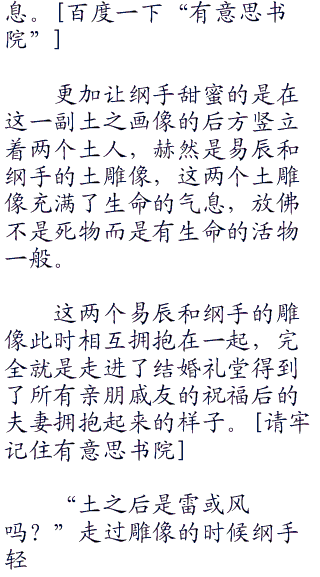 息。[百度一下“有意思书
院”]
更加让纲手甜蜜的是在
这一副土之画像的后方竖立
着两个土人，赫然是易辰和
纲手的土雕像，这两个土雕
像充满了生命的气息，放佛
不是死物而是有生命的活物
一般。
这两个易辰和纲手的雕
像此时相互拥抱在一起，完
全就是走进了结婚礼堂得到
了所有亲朋戚友的祝福后的
夫妻拥抱起来的样子。[请牢
记住有意思书院]
“土之后是雷或风
吗？”走过雕像的时候纲手
轻